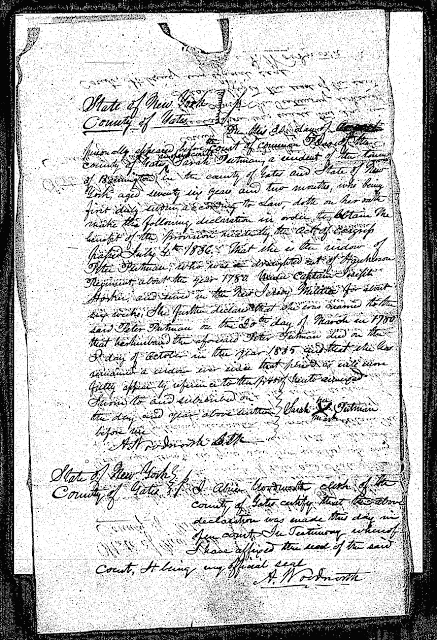 State of New York } ss
County of Yates
On this 3d day of
personally appeared before the Court of Common Pleas of the
county of Yates Sarah Putman, a resident of the town
of Barrington in the county of Yates and State of New
York aged seventy six years and two months, who being
first duly sworn according to Law, doth on her oath
make the following declaration in order to obtain the
benefit of the provision made by the Act of Congress
passed July 4th 1836. That she is the widow of
Peter Putman, who was
Regiment about the year 1780 under Captain Joseph
and served in the New Jersey Militia for about
six weeks. She further declares that she was married to the
said Peter Putman on the 20th day of March in 1780
that her husband the aforesaid Peter Putman died on the
day of October in the year 1815 and that she has
remained a widow ever since that period as will more
fully appear by reference to the proof hereto annexed
Sworn to and subscribed on
the day and year above written } Sarah her X mark Putman
before me
A. Woodworth Clk
State of New York }
County of Yates } ss. I Abner Woodworth clerk of the
county of Yates certify that the above
declaration was made this day in
open court. In Testimony whereof
I have affixed the seal of the said
Court, it being my official seal
A. Woodworth